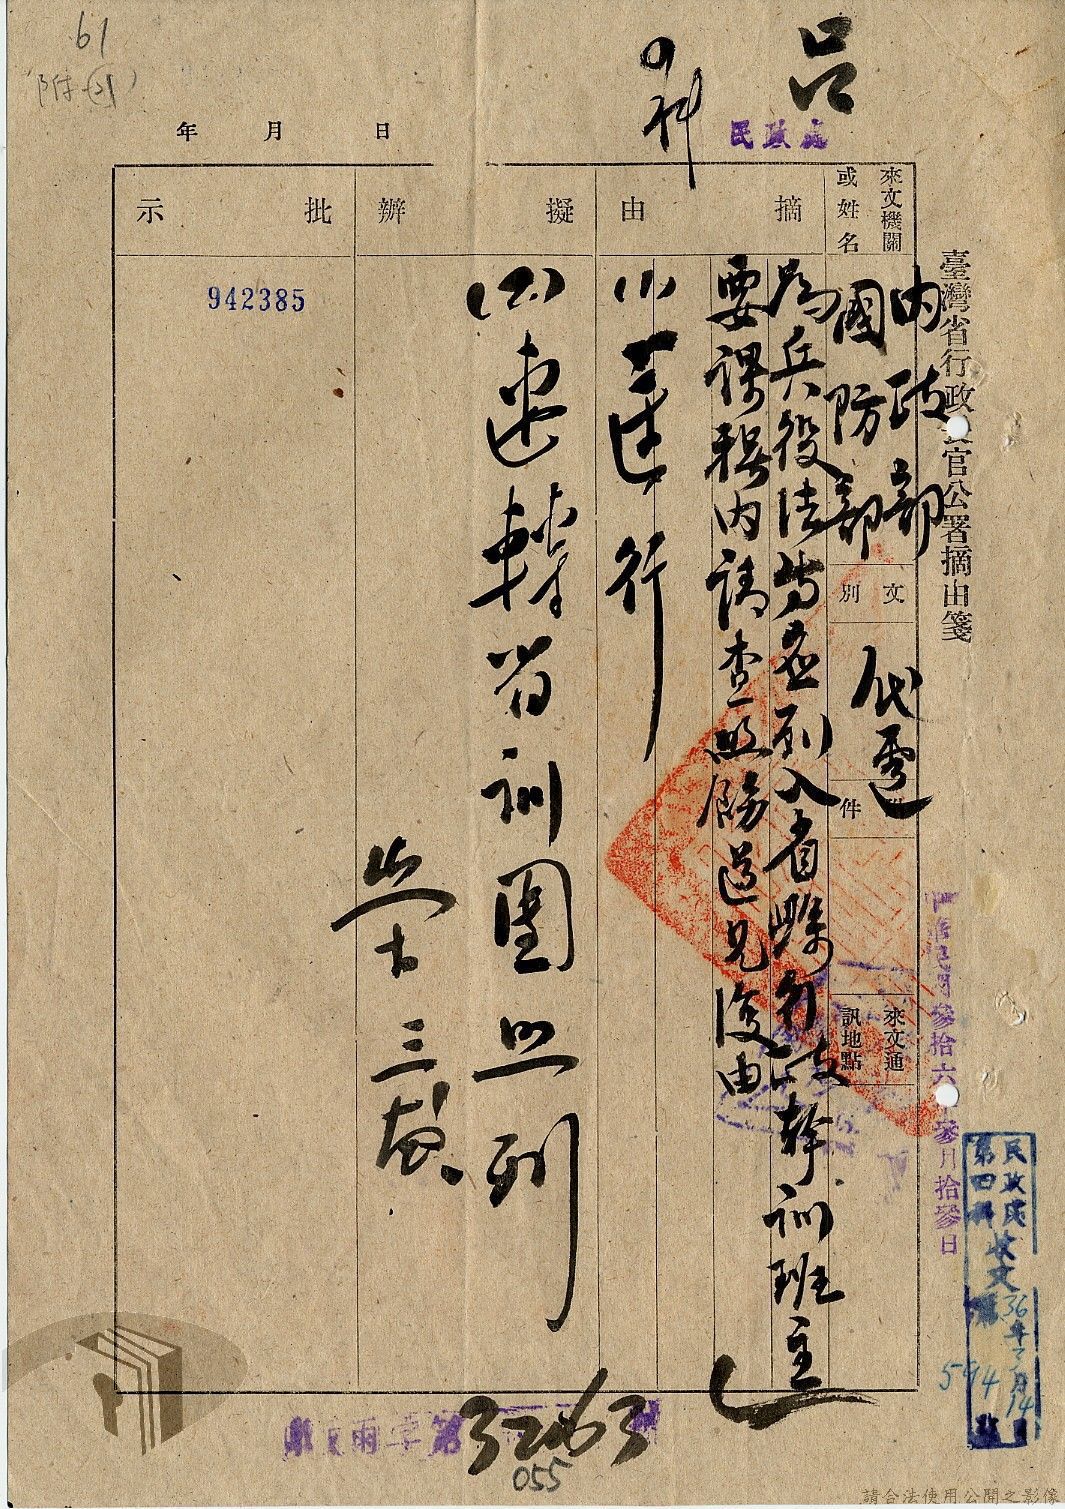 臺灣省行政長官公署摘由箋
來文機關
或姓名
內政部
國防部
文別
代電
件
來文通
訊地點
摘由
為兵役法等應列入省縣幹訓班主
要課程內請查照飭遵見復由
擬辦
遵行
速轉省訓團照列
批示
942385
年 月 日
呂
民政處
61
附
中華民國參拾六年參月拾參日
民政處
第四科收文
36年3月14
594
字第
3263
055
請合法使用公開之影像